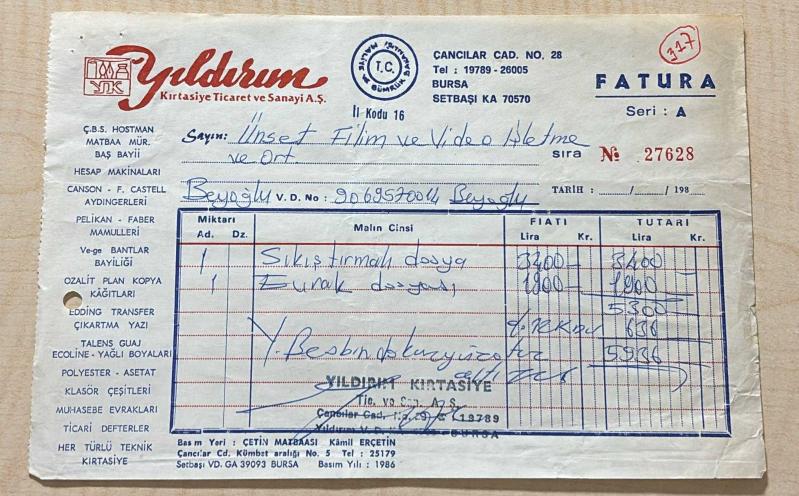 YTK
Yıldırım
Kırtasiye Ticaret ve Sanayi A.Ş.
T.C. MALİYE VE GÜMRÜK BAKANLIĞI
İl Kodu 16
ÇANCILAR CAD. NO. 28
Tel : 19789 - 26005
BURSA
SETBAŞI KA 70570
317
FATURA
Seri : A
Sayın: Ünset Filim ve Video İşletme
ve Ort.
sıra № 27628
Beyoğlu V. D. No : 9069570014 Beyoğlu
TARİH : ...../...../198
Ç.B.S. HOSTMAN
MATBAA MÜR.
BAŞ BAYİİ
HESAP MAKİNALARI
CANSON - F. CASTELL
AYDINGERLERİ
PELİKAN - FABER
MAMULLERİ
Ve-ge BANTLAR
BAYİLİĞİ
OZALİT PLAN KOPYA
KÂĞITLARI
EDDING TRANSFER
ÇIKARTMA YAZI
TALENS GUAJ
ECOLINE - YAĞLI BOYALARI
POLYESTER - ASETAT
KLASÖR ÇEŞİTLERİ
MUHASEBE EVRAKLARI
TİCARİ DEFTERLER
HER TÜRLÜ TEKNİK
KIRTASİYE
Miktarı Malın Cinsi FİATI TUTARI
Ad. Dz. Lira Kr. Lira Kr.
1 Sıkıştırmalı dosya 3400 — 3400
1 Evrak dosyası 1900 — 1900
5300
% 12 KDV 636
Y. Beşbindokuzyüzotuz 5936
altı
YILDIRIM KIRTASİYE
Tic. ve San. A. Ş.
Çancılar Cad. 19789
Yıldırım V. D. BURSA
Basım Yeri : ÇETİN MATBAASI Kâmil ERÇETİN
Çancılar Cd. Kümbet aralığı No. 5 Tel : 25179
Setbaşı VD. GA 39093 BURSA Basım Yılı : 1986